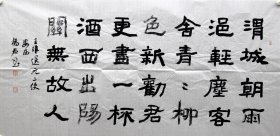 渭城朝雨
浥輕塵客
舍青〻柳
色新勸君
更盡一杯
酒西出陽
關無故人
王維送元二使
安西
楊